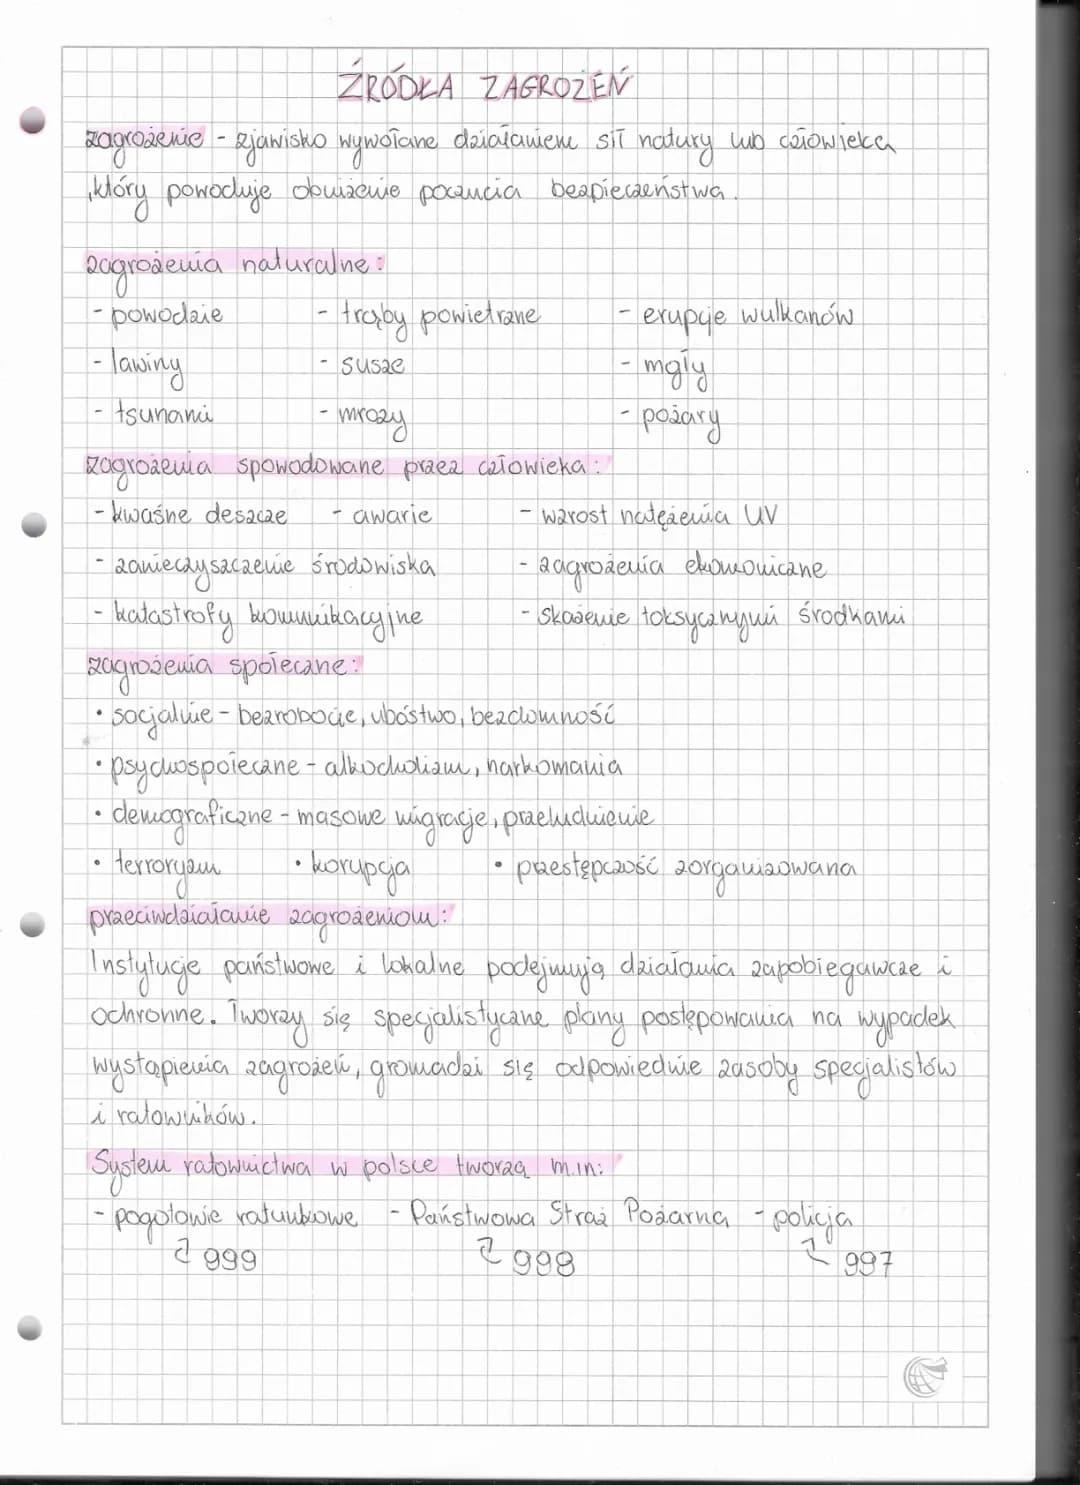 ŹRÓDŁA ZAGROŻEŃ
zagrożenie - zjawisko wywołane działaniem sił natury lub człowieka
,który powoduje obniżenie poczucia bezpieczeństwa.
zagrożenia naturalne:
- powodzie - trąby powietrzne - erupcje wulkanów
- lawiny - susze - mgły
- tsunami - mrozy - pożary
zagrożenia spowodowane przez człowieka:
- kwaśne deszcze - awarie - wzrost natężenia UV
- zanieczyszczenie środowiska - zagrożenia ekonomiczne
- katastrofy komunikacyjne - skażenie toksycznymi środkami
zagrożenia społeczne:
• socjalnie - bezrobocie, ubóstwo, bezdomność
• psychospołeczne - alkocholizm, narkomania
• demograficzne - masowe migracje, przeludnienie
• terroryzm • korupcja • przestępczość zorganizowana
przeciwdziałanie zagrożeniom:
Instytucje państwowe i lokalne podejmują działania zapobiegawcze i
ochronne. Tworzy się specjalistyczne plany postępowania na wypadek
wystąpienia zagrożeń, gromadzi się odpowiednie zasoby specjalistów
i ratowników.
System ratownictwa w polsce tworzą m.in:
- pogotowie ratunkowe - Państwowa Straż Pożarna - policja
999 998 997